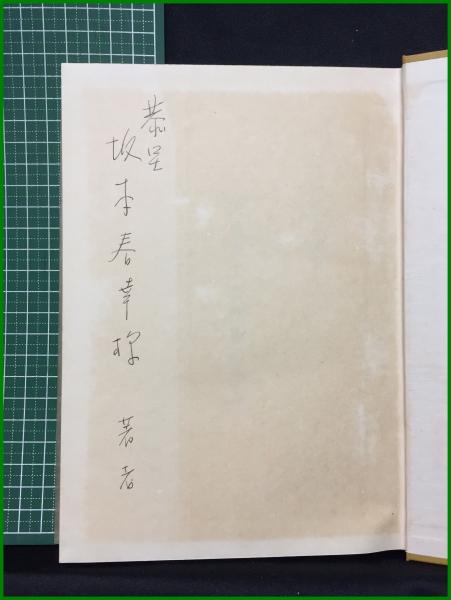 恭呈
坂本春幸様
著者